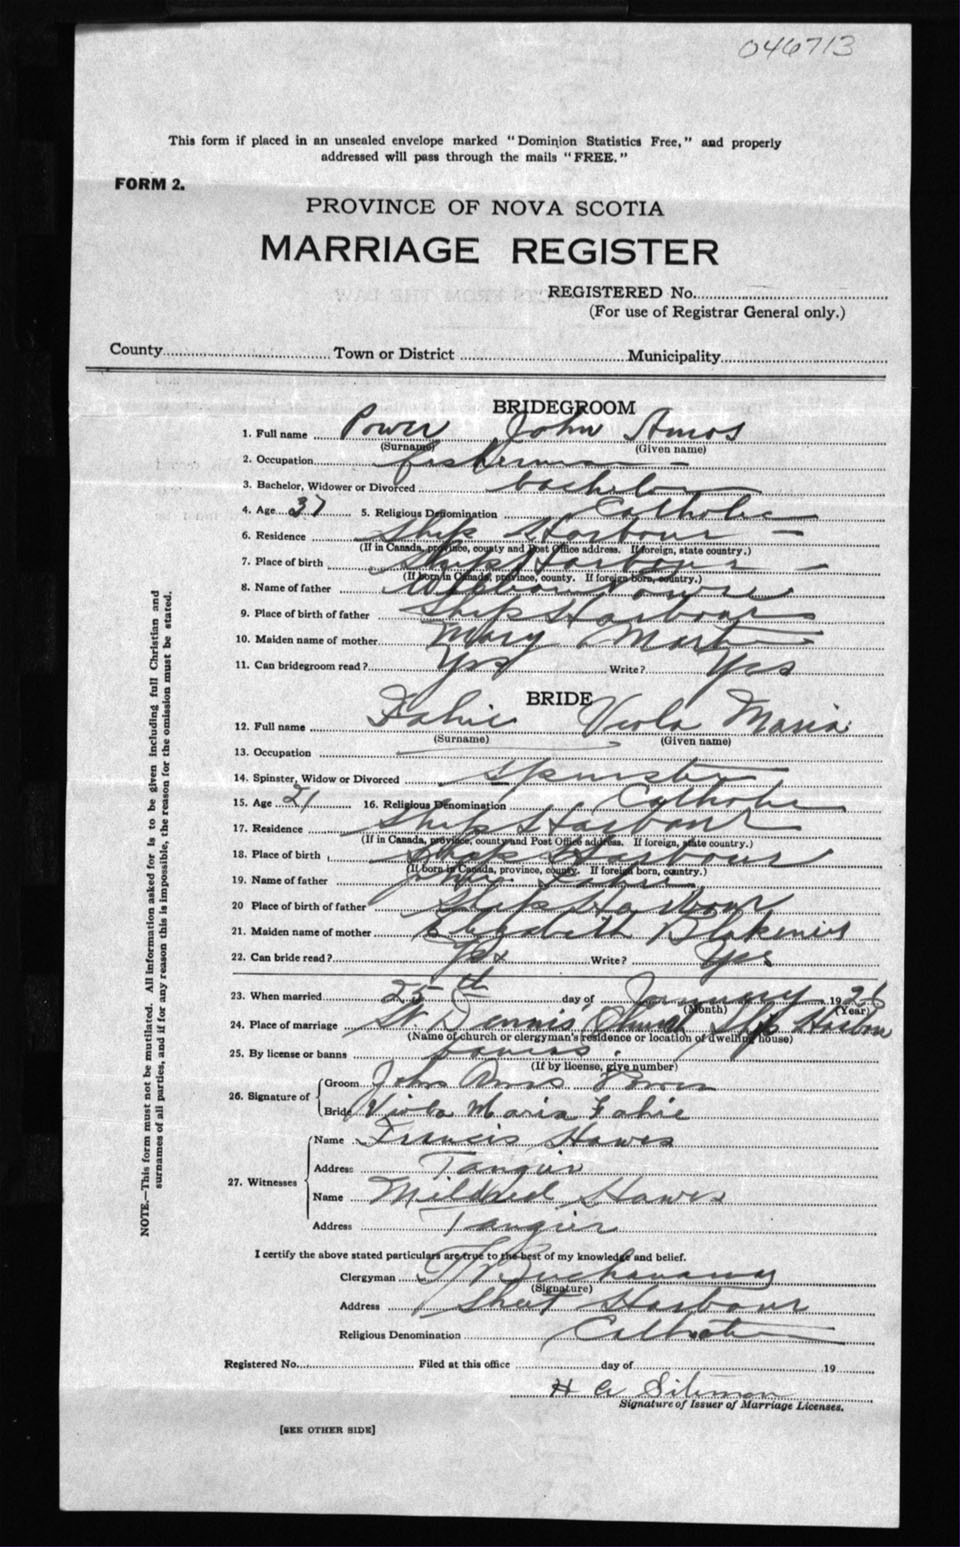 046713
This form if placed in an unsealed envelope marked "Dominion Statistics Free," and properly
addressed will pass through the mails "FREE."
FORM 2.
PROVINCE OF NOVA SCOTIA
MARRIAGE REGISTER
REGISTERED No.
(For use of Registrar General only.)
County Town or District Municipality
BRIDEGROOM
1. Full name Power John Amos
(Surname) (Given name)
2. Occupation fisherman
3. Bachelor, Widower or Divorced bachelor
4. Age 37 5. Religious Denomination Catholic
6. Residence Ship Harbour
(If in Canada, province, county and Post Office address. If foreign, state country.)
7. Place of birth Ship Harbour
(If born in Canada, province, county. If foreign born, country.)
8. Name of father William
9. Place of birth of father Ship Harbour
10. Maiden name of mother Mary
11. Can bridegroom read? Yes Write? Yes
BRIDE
12. Full name Fahie Viola Maria
(Surname) (Given name)
13. Occupation
14. Spinster, Widow or Divorced Spinster
15. Age 21 16. Religious Denomination Catholic
17. Residence Ship Harbour
(If in Canada, province, county and Post Office address. If foreign, state country.)
18. Place of birth Ship Harbour
(If born in Canada, province, county. If foreign born, country.)
19. Name of father Fahie
20 Place of birth of father Ship Harbour
21. Maiden name of mother Elizabeth
22. Can bride read? Yes Write? Yes
23. When married 25th day of January 1926
(Month) (Year)
24. Place of marriage St. Dennis Church Ship Harbour
(Name of church or clergyman's residence or location of dwelling house)
25. By license or banns banns
(If by license, give number)
26. Signature of Groom John Amos Power
Bride Viola Maria Fahie
27. Witnesses Name Francis Hawes
Address Tangier
Name Mildred Hawes
Address Tangier
I certify the above stated particulars are true to the best of my knowledge and belief.
Clergyman
(Signature)
Address Sheet Harbour
Religious Denomination Catholic
Registered No. Filed at this office day of 19
H A
Signature of Issuer of Marriage Licenses.
[SEE OTHER SIDE]
NOTE.—This form must not be mutilated. All information asked for is to be given including full Christian and
surnames of all parties, and if for any reason this is impossible, the reason for the omission must be stated.